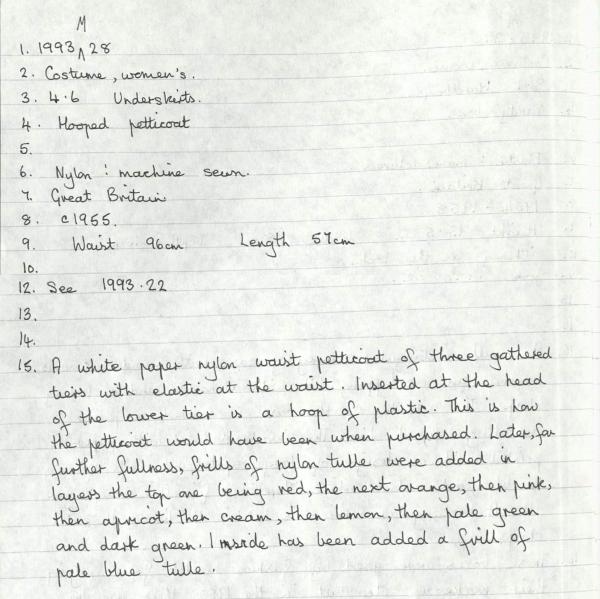 M
1. 1993 ^ 28
2. Costume, women's.
3. 4.6 Underskirts.
4. Hooped petticoat
5.
6. Nylon : machine sewn.
7. Great Britain
8. c1955.
9. Waist 96cm Length 57cm
10.
12. See 1993.22
13.
14.
15. A white paper nylon waist petticoat of three gathered
tiers with elastic at the waist. Inserted at the head
of the lower tier is a hoop of plastic. This is how
the petticoat would have been when purchased. Later, for
further fullness, frills of nylon tulle were added in
layers the top one being red, the next orange, then pink,
then apricot, then cream, then lemon, then pale green
and dark green. Inside has been added a frill of
pale blue tulle.